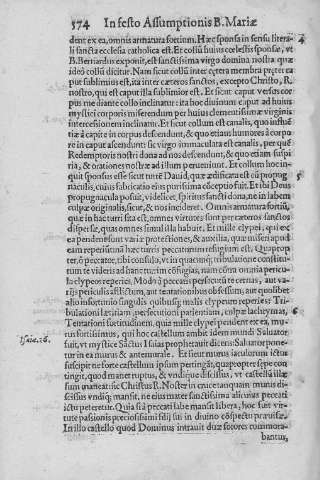 574 In festo Assumptionis B. Mariæ
dent ex ea, omnis armatura fortium. Hæc sponsa in sensu litera- 4
li sancta ecclesia catholica est. Et collũ huius cœlestis sponsæ, vt
B. Bernardus exponit, est sanctissima virgo domina nostra quæ
ideò collũ dicitur. Nam sicut collũ inter cętera membra pręter ca
put sublimius est, ita inter cæteros sanctos, excepto Christo, R.
nostro, qui est caput illa sublimior est. Et sicut caput versus cor
pus mediante collo inclinatur: ita hoc diuinum caput ad huius
mystici corporis miserendum per huius clementissimæ virginis
intercessionem inclinatur. Et sicut collum est canalis, quo iustiẽ
tiæ à capite in corpus descendunt, & quo etiam humores à corpo
re in caput ascendunt: sic virgo immaculata est canalis, per quẽ
Redemptoris nostri dona ad nos descendunt, & quo etiam suspi
ria, & orationes nostræ ad illum perueniunt. Et collum hoc in-
quit sponsus esse sicut turrẽ Dauid, quæ ædificata est cũ propug 5
naculis, cuius fabricatio eius purissima cõceptio fuit. Et ibi Deus
propugnacula posuit, videlicet, spiritus sancti dona, ne in labem
culpæ originalis, sicut, & nos incideret. Omnis armatura fortiũ,
quæ in hac turri sita est, omnes virtutes sunt per cæteros sanctos
dispersæ, quas omnes simul illa habuit. Et mille clypei, qui ex
ea pendent sunt variæ protectiones, & auxilia, quæ miseri apud
eam reperiunt: hæc turris peccatorum refugium est. Quaprop
ter, ô peccator, tibi consulo, vt in quacunq; tribulatione constitu
tum te videris ad hanc turrim cõfugias, nam cõtra omnia pericu-
la clypeos reperies. Modo à peccatis persecutũ te cernas, aut va-
rijs periculis afflictum, aut tentationibus obsessum, aut quolibet
alio infortunio singulis quibusq; malis clypeum reperies: Tri-
bulationi lætitiam, persecutioni patientiam, culpæ lachrymas, 6
Tentationi fortitudinem, quia mille clypei pendent ex ea, mu-
rus fortissimus, qui hoc castellum ambit idem mundi Saluator
Isaiæ. 26. fuit, vt mysticè Sãctus Isaias prophetauit dicens: Saluator pone-
tur in ea murus & antemurale. Et sicut murus iaculorum ictus
suscipit ne forte castellum ipsum pertingãt, quapropter sępe con
tingit, quod manet ruptus, & vndiq; discissus, vt castellũ illæ-
sum maneat: sic Christus R. Noster in cruce tanquam murus di-
scissus vndiq; mansit, ne eius mater sanctissima alicuius peccati
ictu peteretur. Quia si à peccati labe mansit libera, hoc fuit vir-
tute passionis preciosissimi filij sui in diuino cõspectu præuisæ.
In illo castello quod Dominus intrauit duæ sorores commora-
bantur,